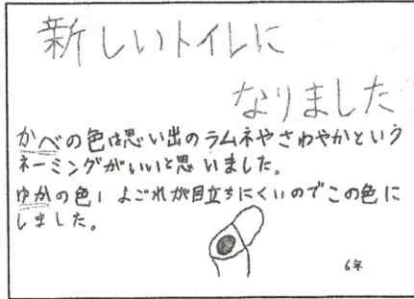 新しいトイレに
なりました
かべの色は思い出のラムネやさわやかという
ネーミングがいいと思いました。
ゆかの色は よごれが目立ちにくいのでこの色に
しました。
6年